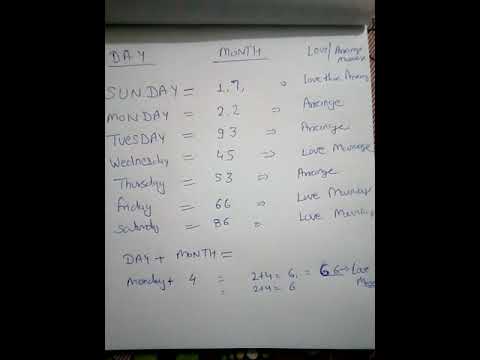 DAY MONTH Love/Arrange marriage
SUNDAY = 1,7, => Love then Arrang
MONDAY = 2,2 => Arrange
TUESDAY = 93 => Arrange
Wednesday = 45 => Love Marriage
Thursday = 53 => Arrange
friday = 66 => Love Marriage
Saturday = 86 = Love Marriage
DAY + MONTH =
Monday + 4 = 2+4 = 6, = 66 => Love
= 2+4 = 6